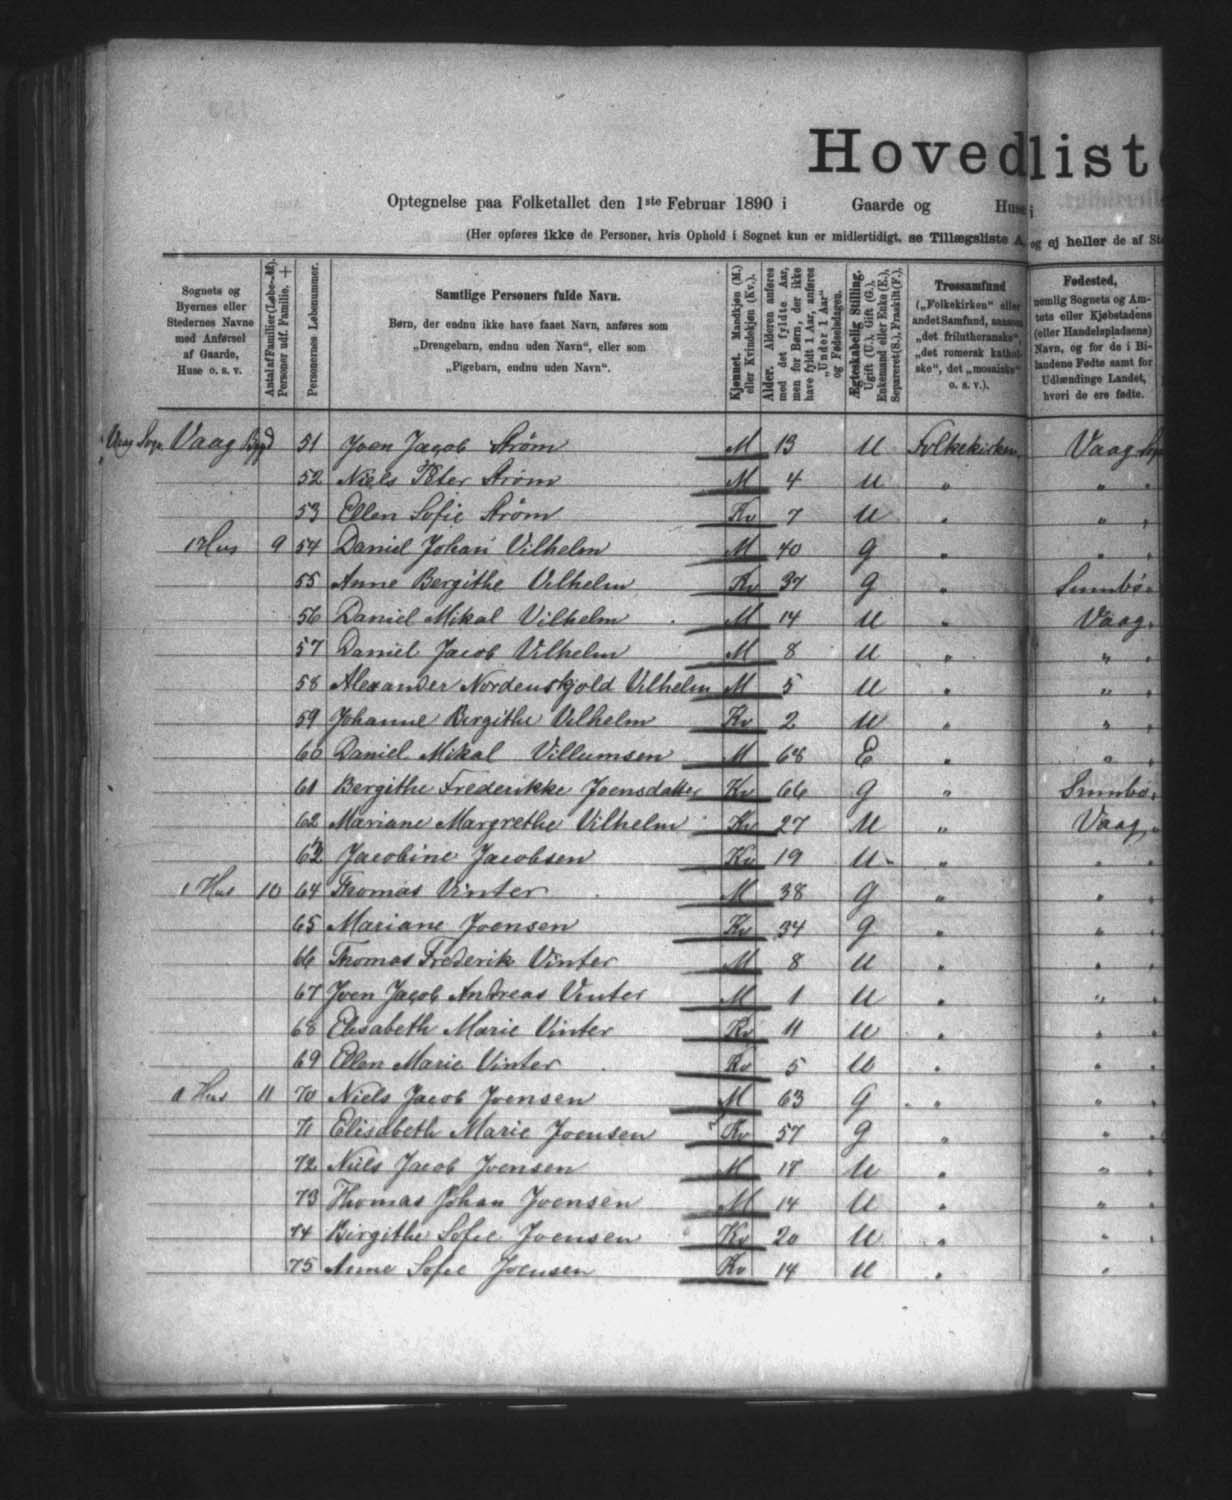 Hovedliste
Optegnelse paa Folketallet den 1ste Februar 1890 i Gaarde og Huse i
(Her opføres ikke de Personer, hvis Ophold i Sognet kun er midlertidigt, se Tillægsliste A, og ej heller de af
Sognets og Byernes eller Stedernes Navne med Anførsel af Gaarde, Huse o. s. v.
Antal af Familier (Løbe-№). Personer udf. Familie. +
Personernes Løbenummer.
Samtlige Personers fulde Navn.
Børn, der endnu ikke have faaet Navn, anføres som
„Drengebarn, endnu uden Navn“, eller som
„Pigebarn, endnu uden Navn“.
Kjønnet. Mandkjøn (M.) eller Kvindekjøn (Kv.).
Alder. Alderen anføres med det fyldte Aar, men for Børn, der ikke have fyldt 1 Aar, anføres „Under 1 Aar“ og Fødselsdagen.
Ægteskabelig Stilling. Ugift (U.), Gift (G.), Enkemand eller Enke (E.), Separeret (S.), Fraskilt (F.).
Trossamfund („Folkekirken“ eller andet Samfund, saasom „det frilutheranske“, „det romersk katholske“, det „mosaiske“ o. s. v.).
Fødested, nemlig Sognets og Amtets eller Kjøbstadens (eller Handelspladsens) Navn, og for de i Bilandene Fødte samt for Udlændinge Landet, hvori de ere fødte.
Vaag Sogn Vaag Bygd 51 Joen Jacob Strøm M 13 U Folkekirken Vaag
52 Niels Peter Strøm M 4 U " "
53 Ellen Sofie Strøm Kv 7 U " "
1 Hus 9 54 Daniel Johan Vilhelm M 40 G " "
55 Anne Bergithe Vilhelm Kv 37 G " Sumbø
56 Daniel Mikal Vilhelm M 14 U " Vaag
57 Daniel Jacob Vilhelm M 8 U " "
58 Alexander Nordenskjold Vilhelm M 5 U " "
59 Johanne Birgithe Vilhelm Kv 2 U " "
60 Daniel Mikal Villumsen M 68 E " "
61 Bergithe Frederikke Joensdatter Kv 66 G " Sumbø
62 Mariane Margrethe Vilhelm Kv 27 U " Vaag
Jacobine Jacobsen Kv 19 U " "
1 Hus 10 64 Thomas Vinter M 38 G " "
65 Mariane Joensen Kv 34 G " "
66 Thomas Frederik Vinter M 8 U " "
67 Joen Jacob Andreas Vinter M 1 U " "
68 Elisabeth Marie Vinter Kv 11 U " "
69 Ellen Marie Vinter Kv 5 U " "
1 Hus 11 70 Niels Jacob Joensen M 63 G " "
71 Elisabeth Marie Joensen Kv 57 G " "
72 Niels Jacob Joensen M 18 U " "
73 Thomas Johan Joensen M 14 U " "
74 Birgithe Sofie Joensen Kv 20 U " "
75 Anne Sofie Joensen Kv 14 U " "